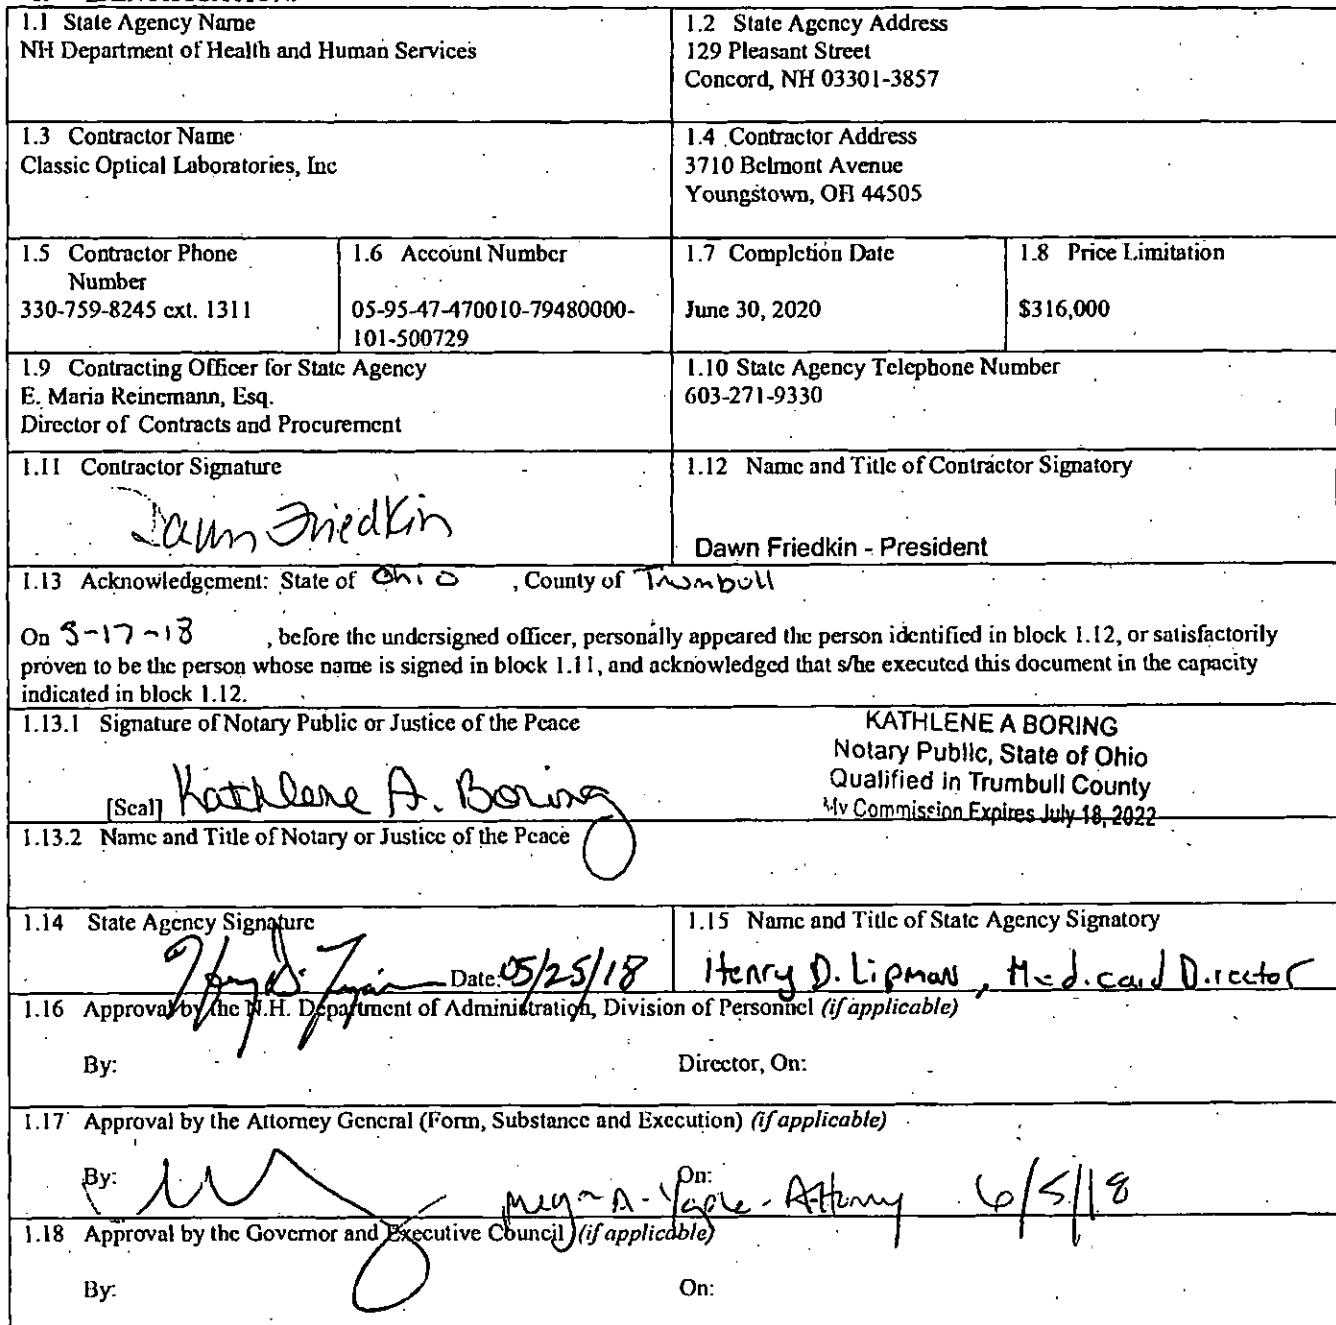 1.1 State Agency Name
NH Department of Health and Human Services
1.2 State Agency Address
129 Pleasant Street
Concord, NH 03301-3857
1.3 Contractor Name
Classic Optical Laboratories, Inc
1.4 Contractor Address
3710 Belmont Avenue
Youngstown, OH 44505
1.5 Contractor Phone
Number
330-759-8245 ext. 1311
1.6 Account Number
05-95-47-470010-79480000-
101-500729
1.7 Completion Date
June 30, 2020
1.8 Price Limitation
$316,000
1.9 Contracting Officer for State Agency
E. Maria Reinemann, Esq.
Director of Contracts and Procurement
1.10 State Agency Telephone Number
603-271-9330
1.11 Contractor Signature
Dawn Friedkin
1.12 Name and Title of Contractor Signatory
Dawn Friedkin - President
1.13 Acknowledgement: State of Ohio , County of Trumbull
On 5-17-18 , before the undersigned officer, personally appeared the person identified in block 1.12, or satisfactorily
proven to be the person whose name is signed in block 1.11, and acknowledged that s/he executed this document in the capacity
indicated in block 1.12.
1.13.1 Signature of Notary Public or Justice of the Peace
[Seal] Kathlene A. Boring
KATHLENE A BORING
Notary Public, State of Ohio
Qualified in Trumbull County
My Commission Expires July 18, 2022
1.13.2 Name and Title of Notary or Justice of the Peace
1.14 State Agency Signature
Date: 05/25/18
1.15 Name and Title of State Agency Signatory
Henry D. Lipman, Medicaid Director
1.16 Approval by the N.H. Department of Administration, Division of Personnel (if applicable)
By:
Director, On:
1.17 Approval by the Attorney General (Form, Substance and Execution) (if applicable)
By:
On:
A. - Attorney 6/5/18
1.18 Approval by the Governor and Executive Council (if applicable)
By:
On: